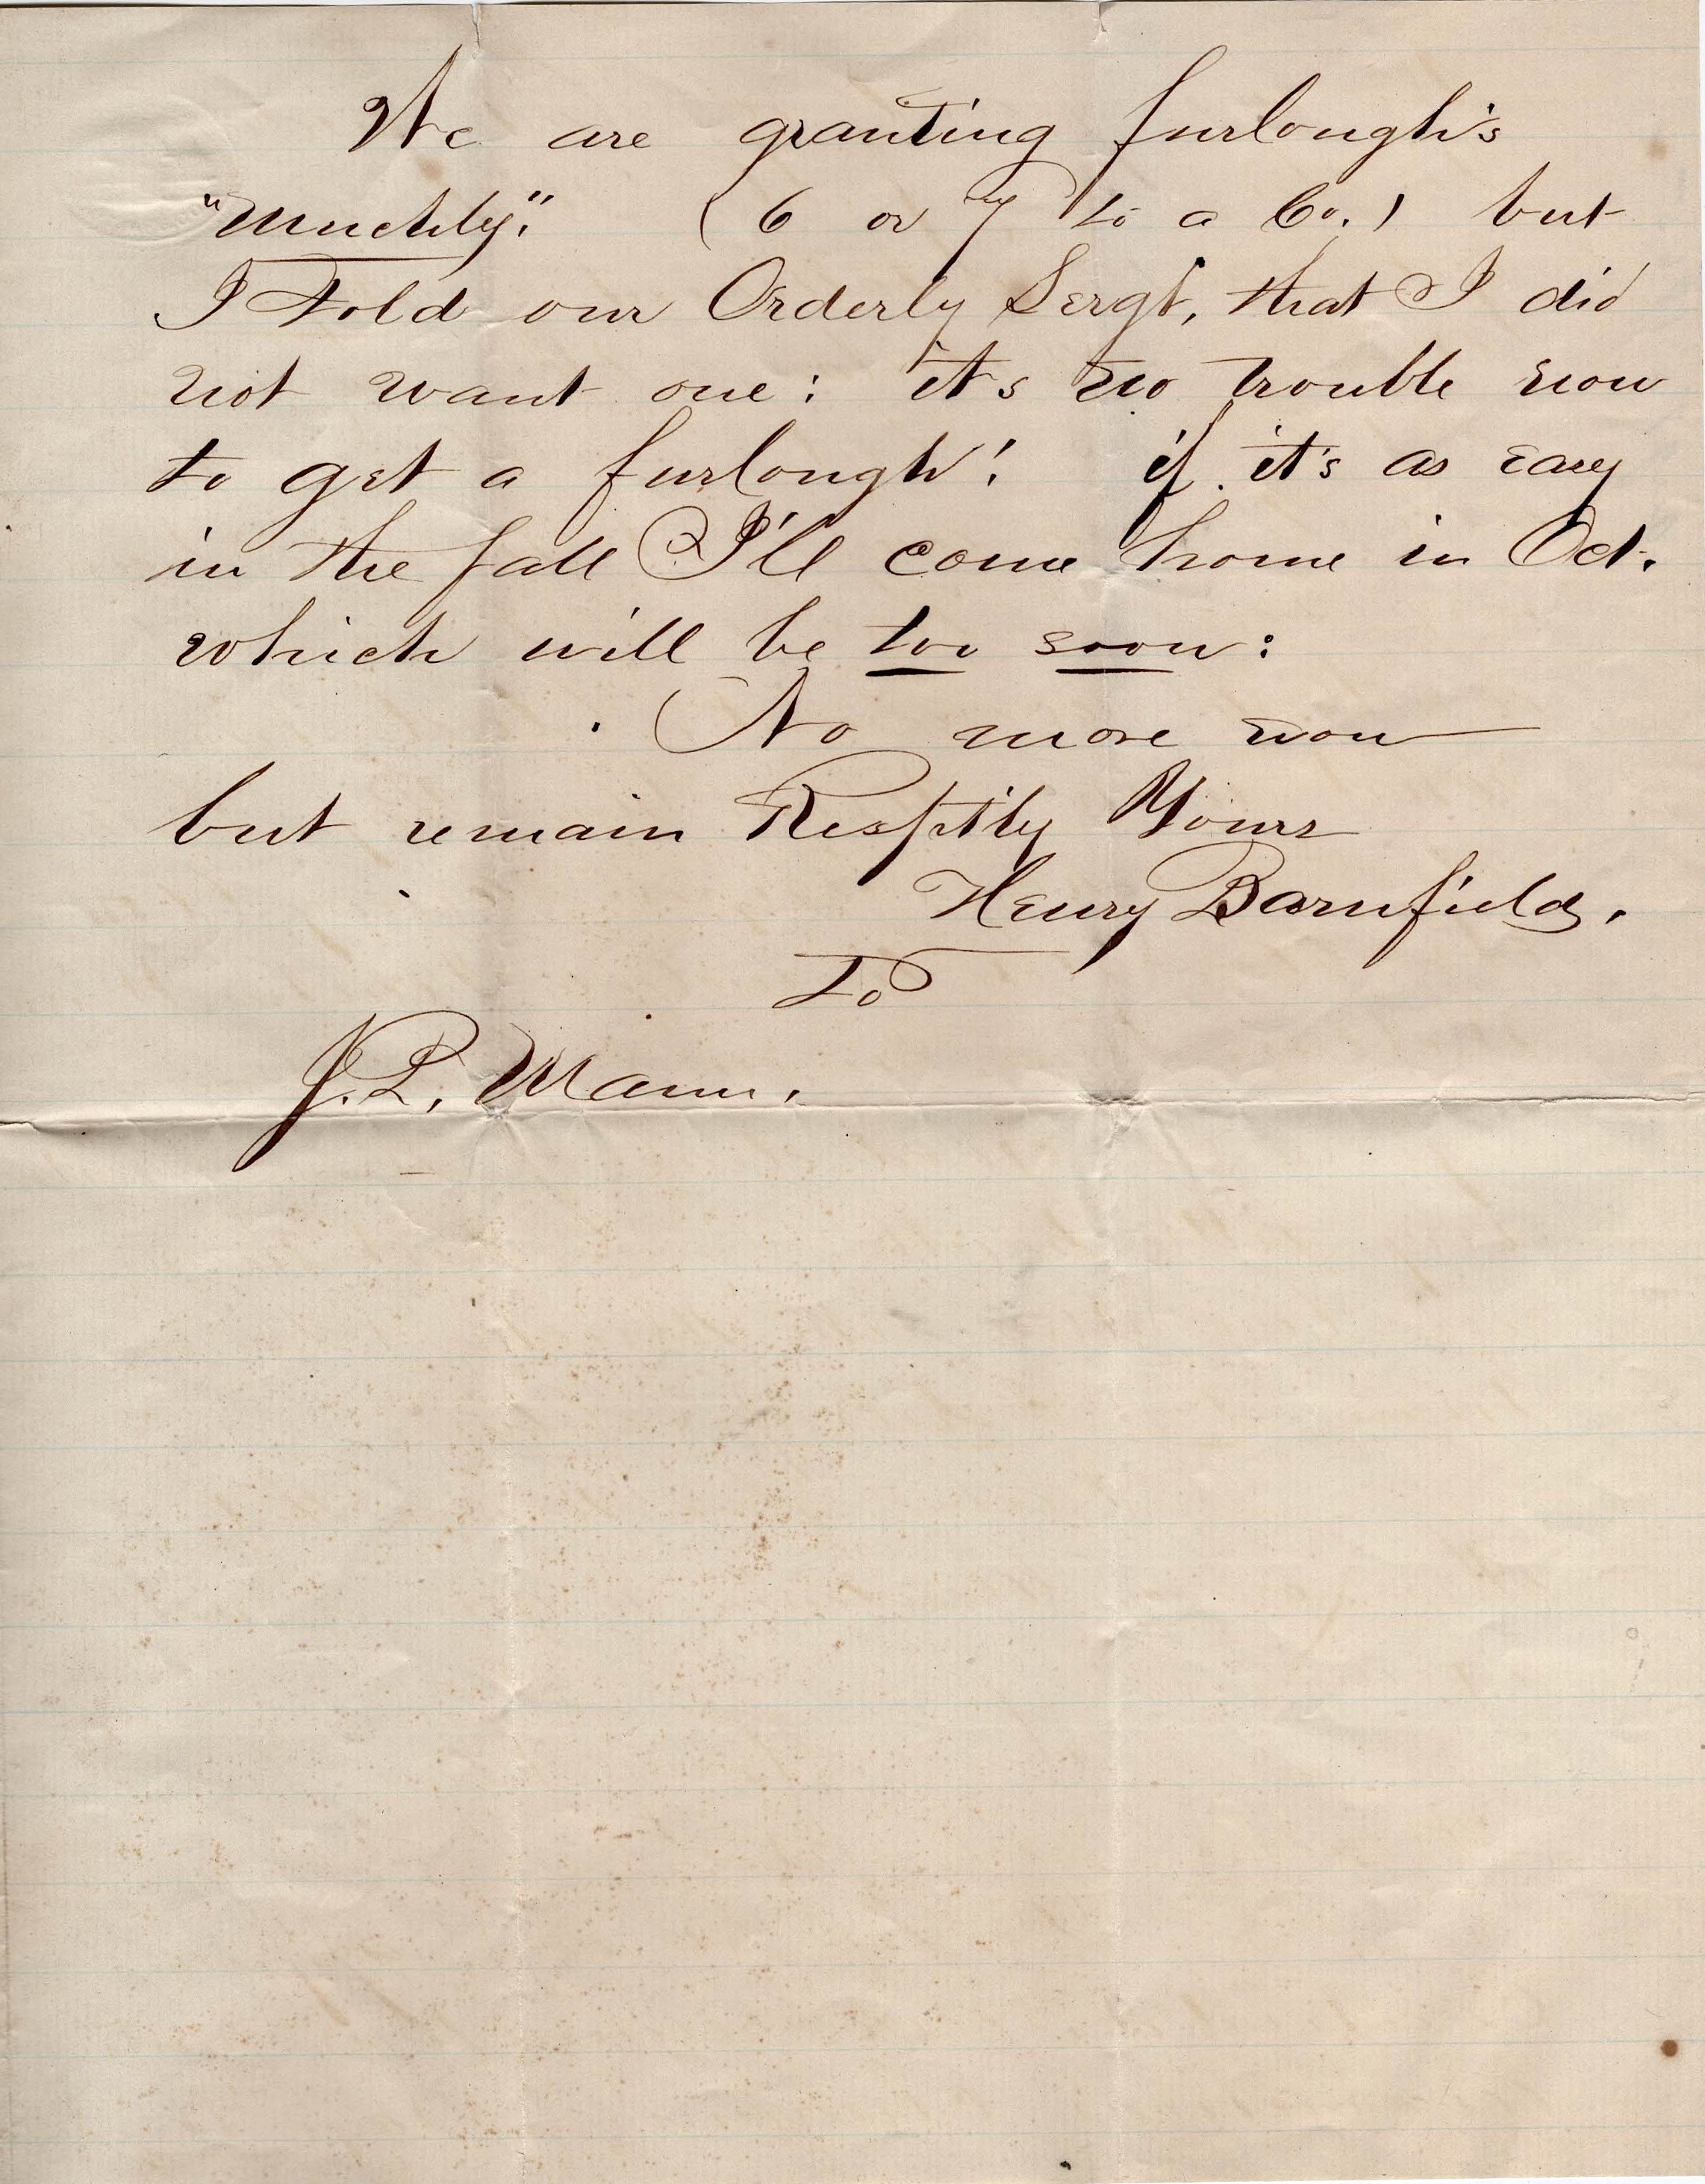 We are granting furlough's
"Muchly." (6 or 7 to a Co.) but
I told our Orderly Sergt, that I did
not want one: it's no trouble now
to get a furlough! if it's as easy
in the fall I'll come home in Oct.
which will be too soon:
No more now
but remain Resptlly Yours
Henry Barnfield.
To
J. L. Mann.